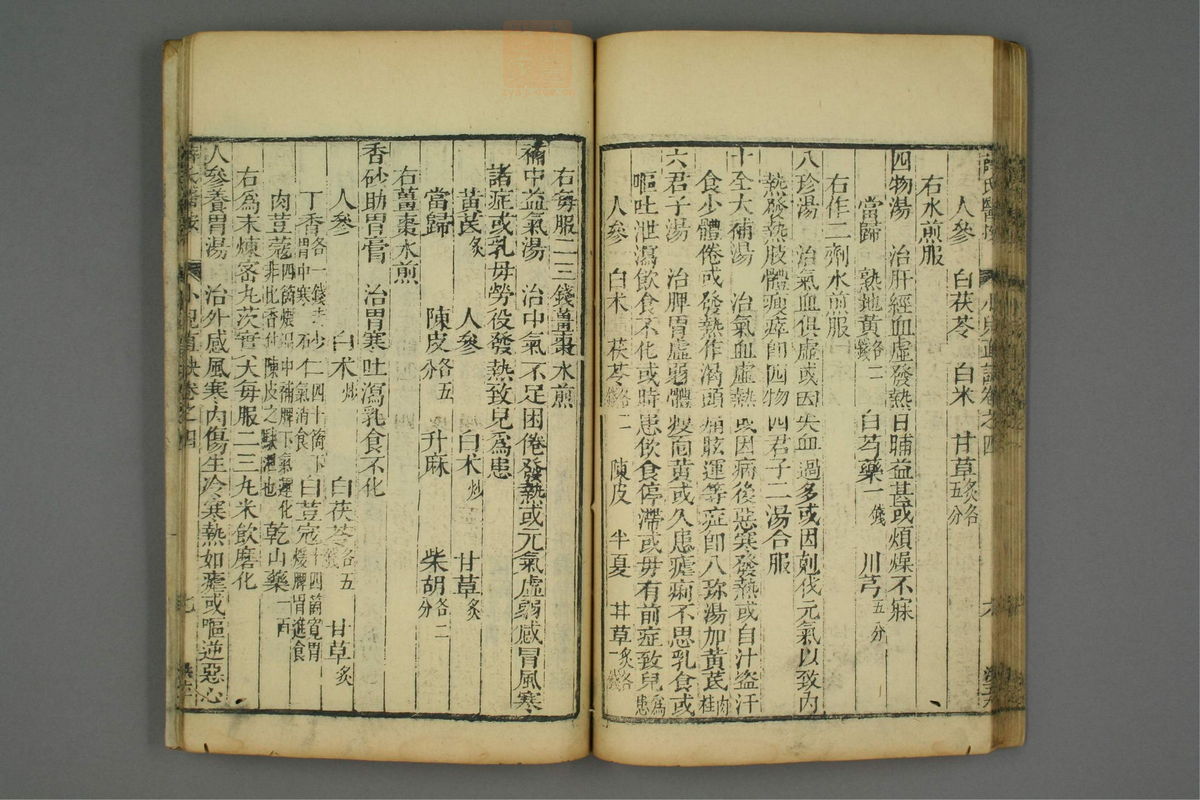 人參　白茯苓　白术　甘草炙各五分
右水煎服
四物湯　治肝經血虛發熱日晡益甚或煩燥不寐
當歸　熟地黃各二錢　白芍藥一錢　川芎五分
右作二劑水煎服
八珍湯　治氣血俱虛或因失血過多或因剋伐元氣以致內
熱發熱肢體瘦瘁卽四物四君子二湯合服
十全大補湯　治氣血虛熱或因病後惡寒發熱或自汁盗汗
食少體倦或發熱作渴頭痛眩運等症卽八珎湯加黃芪肉桂
六君子湯　治脾胃虛弱體瘦面黃或久患瘧痢不思乳食或
嘔吐泄瀉飲食不化或時患飲食停滯或母有前症致兒爲患
人參　白术　茯苓各二錢　陳皮　半夏　甘草炙各一錢
右每服二三錢薑棗水煎
補中益氣湯　治中氣不足困倦發熱或元氣虛弱感冒風寒
諸症或乳母勞役發熱致兒爲患
黃芪炙　人參　白术炒　甘草炙
當歸　陳皮各五分　升麻　柴胡各二分
右薑棗水煎
香砂助胃膏　治胃寒吐瀉乳食不化
人參　白术炒　白茯苓各五錢　甘草炙
丁香各一錢　砂仁四十箇下氣消食　白荳寇十四箇寬胃煖脾胃進食
肉荳蔻四箇煖　陳皮之　也　乾山藥一兩
右爲末煉密丸茨實大每服二三丸米飲磨化
人參養胃湯　治外感風寒內傷生冷寒熱如瘧或嘔逆惡心